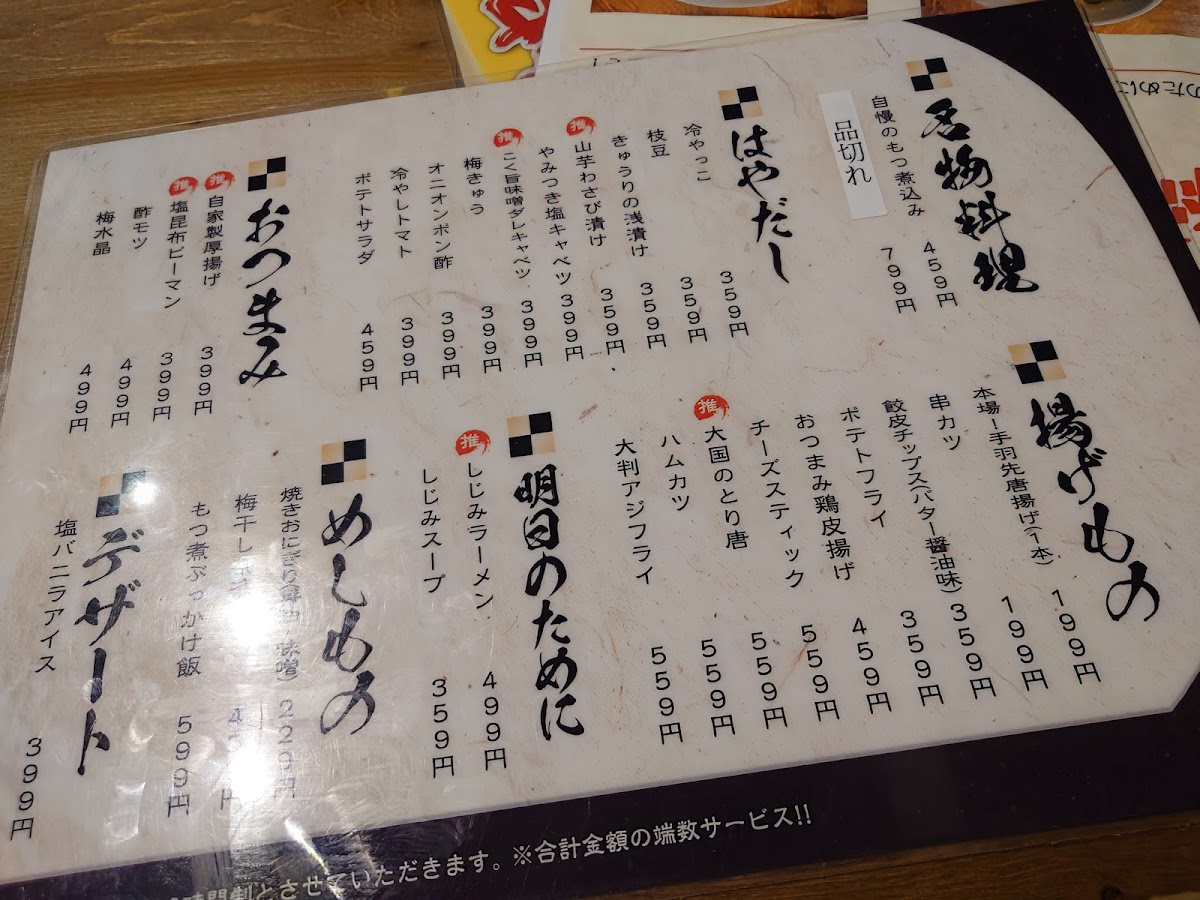 名物料理
自慢のもつ煮込み 459円
品切れ 799円
はやだし
冷やっこ 359円
枝豆 359円
きゅうりの浅漬け 359円
推 山芋わさび漬け 359円
やみつき塩キャベツ 399円
推 こく旨味噌ダレキャベツ 399円
梅きゅう 399円
オニオンポン酢 399円
冷やしトマト 399円
ポテトサラダ 459円
おつまみ
推 自家製厚揚げ 399円
推 塩昆布ピーマン 399円
酢モツ 499円
梅水晶 499円
揚げもの
本場!手羽先唐揚げ(1本) 199円
串カツ 199円
餃皮チップス(バター醤油味) 359円
ポテトフライ 359円
おつまみ鶏皮揚げ 459円
チーズスティック 559円
推 大国のとり唐 559円
ハムカツ 559円
大判アジフライ 559円
明日のために
推 しじみラーメン 499円
しじみスープ 359円
めしもの
焼きおにぎり 味噌) 229円
梅干し
もつ煮ぶっかけ飯 599円
デザート
塩バニラアイス 399円
間制とさせていただきます。※合計金額の端数サービス!!
のために